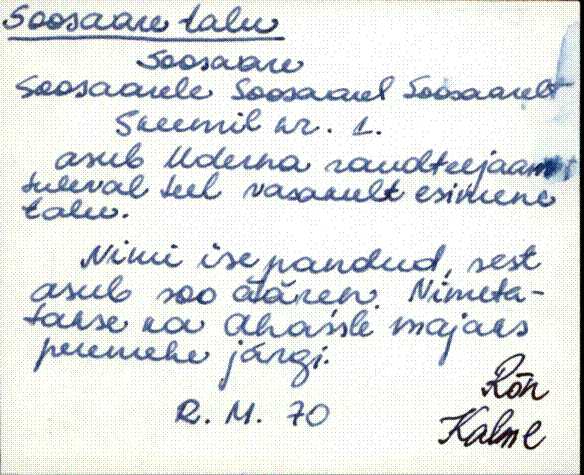 Soosaare talu
Soosaare
Soosaarele Soosaarel Soosaarelt
Skeemil nr. 1.
asub Uderna raudteejaamast
tuleval teel vasakult esimene
talu.
Nimi ise pandud, sest
asub soo äären. Nimeta-
takse ka Ahassli majaks
peremehe järgi.
R. M. 70
Rõn
Kalme